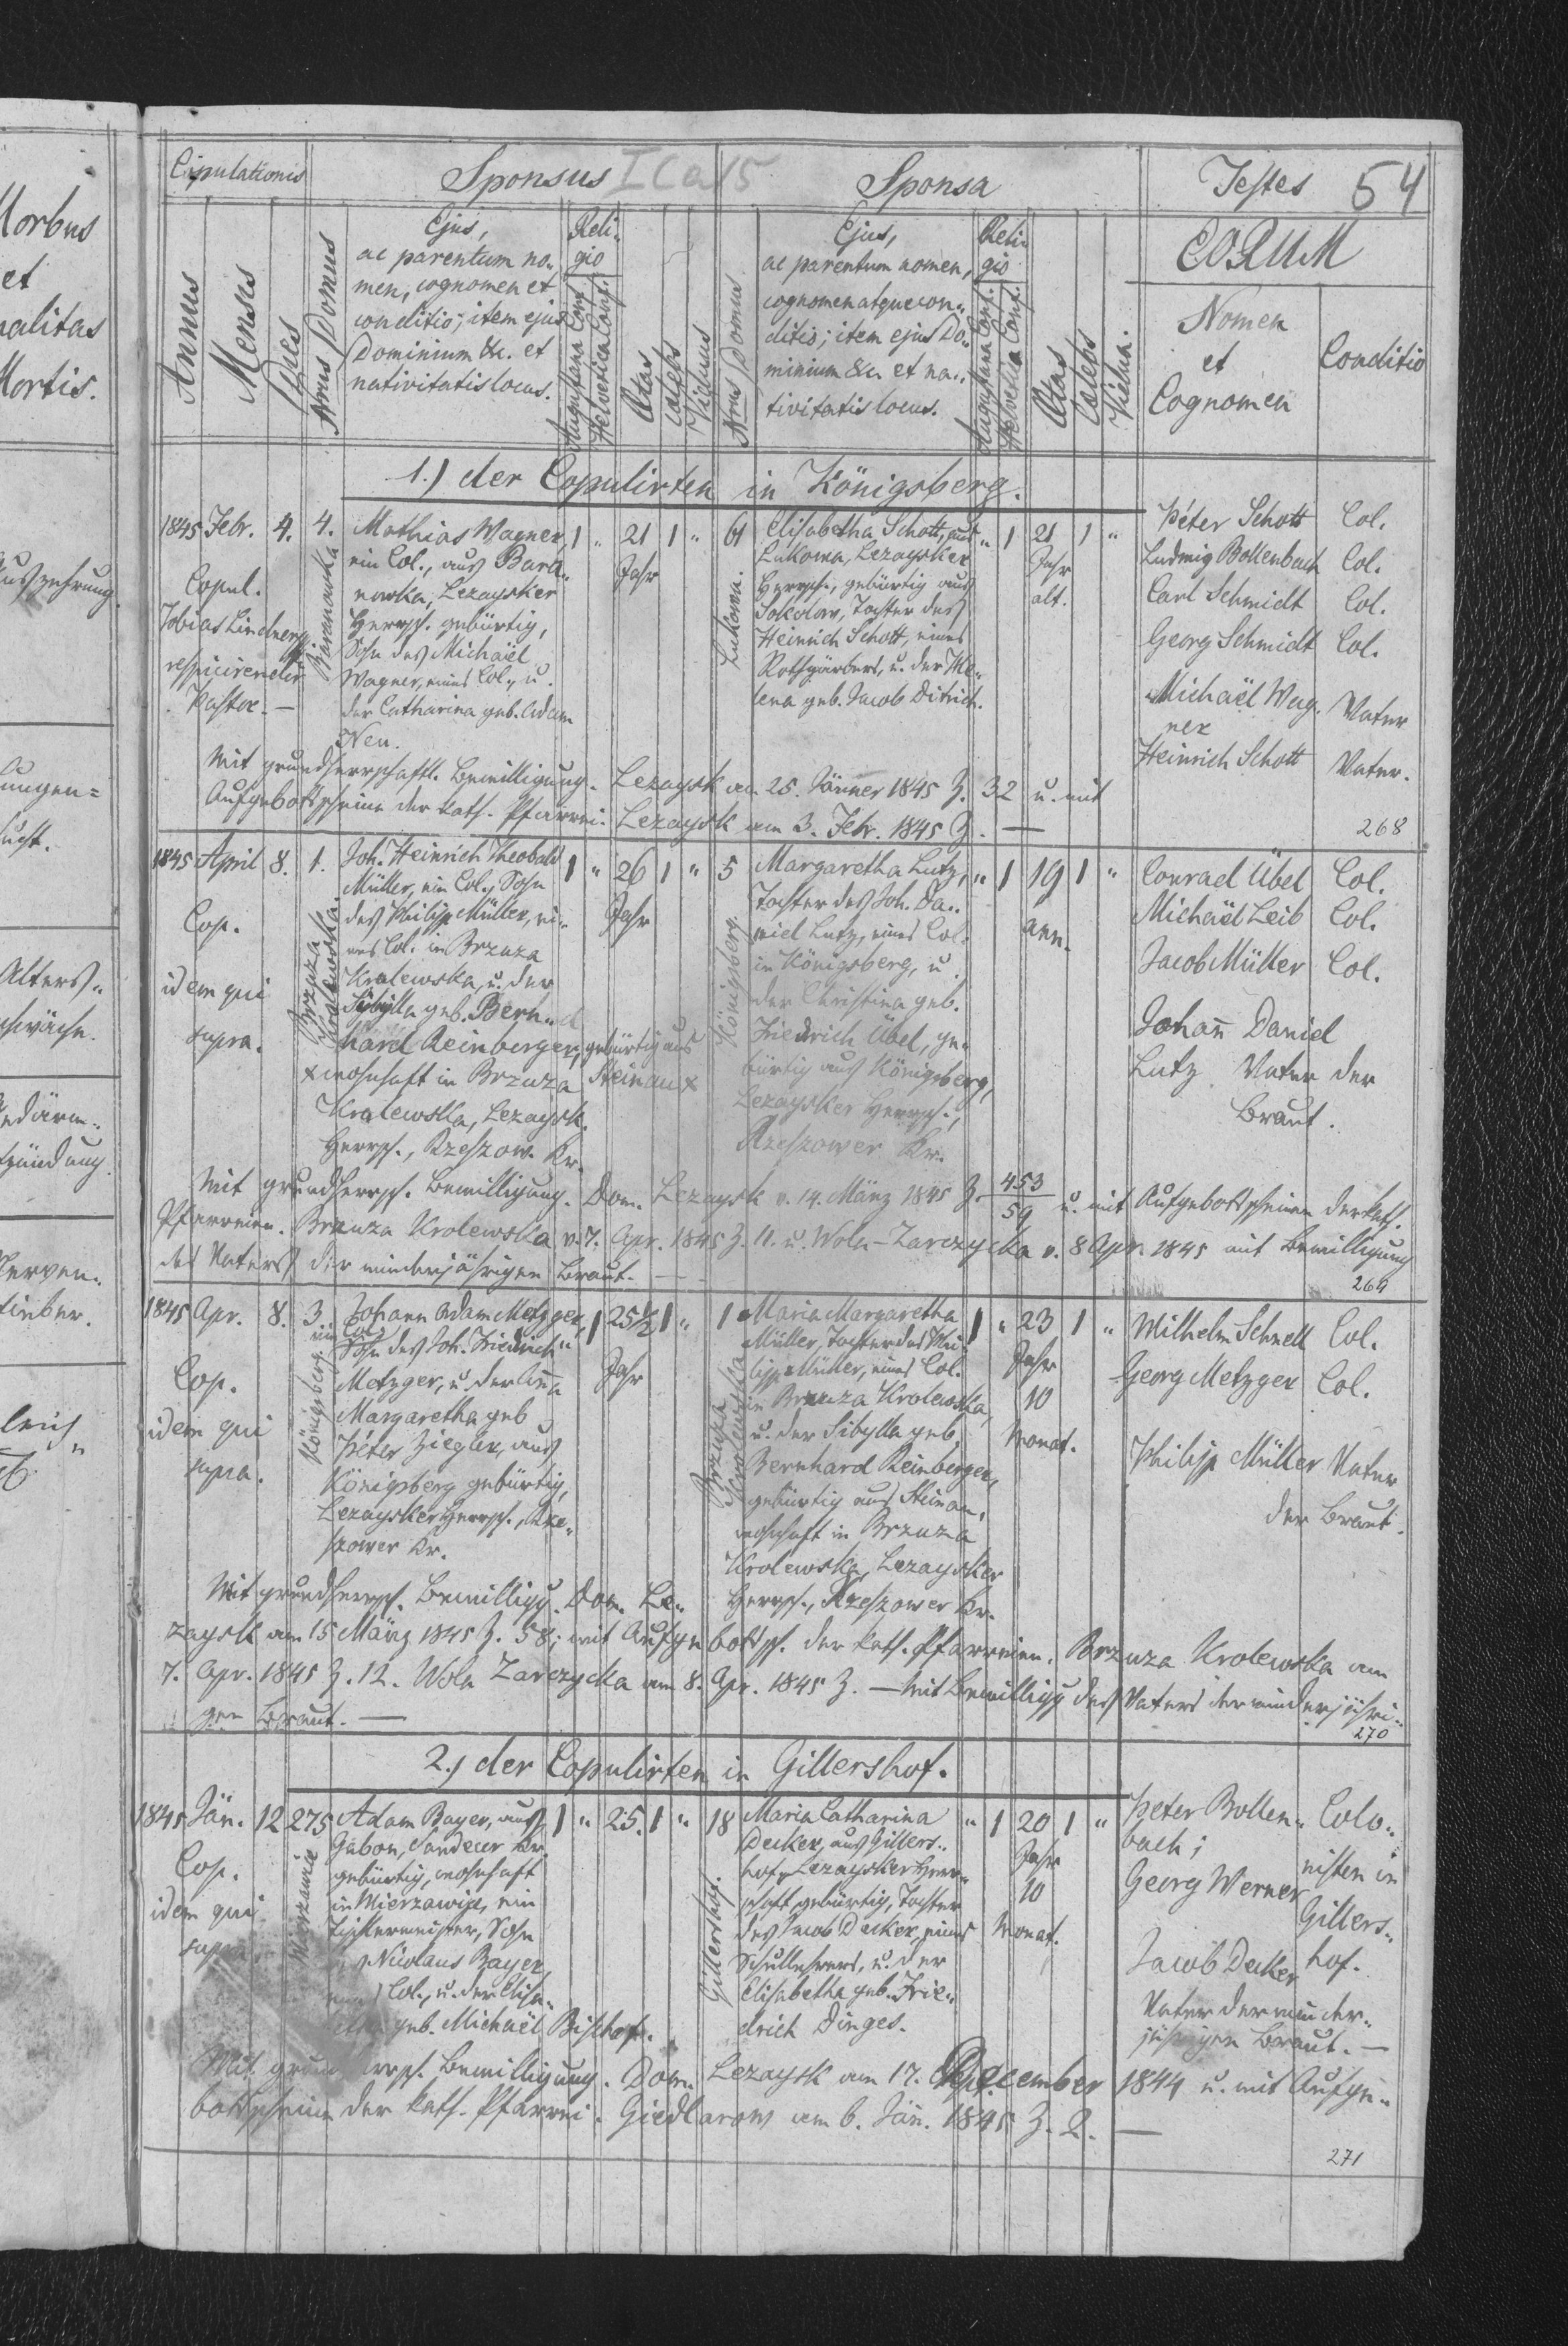 Morbus
et
nalitas
Mortis.
Copulationis
Sponsus
I Ca 15
Sponsa
Testes
54
Annus
Mensis
Dies
Nrus Domus
Ejus,
ac parentum no„
men, cognomen et
conditio; item ejus
Dominium &c. et
nativitatis locus.
Reli„
gio
Augustana Conf.
Helvetica Conf.
Ætas
Cœlebs
Viduus
Nrus Domus
Ejus,
ac parentum nomen,
cognomen atque con„
ditio; item ejus Do„
minium &c. et na„
tivitatis locus.
Reli„
gio
Augustana Conf.
Helvetica Conf.
Ætas
Cœlebs
Vidua.
EORUM
Nomen
et
Cognomen
Conditio
1.) der Copulirten in Königsberg.
1845 Febr. 4.
Copul.
Tobias Lindner
respicirender
Pastor. —
4.
Baranowka
Mathias Wagner,
ein Col., aus Bara„
nowka, Lezaysker
Herrsch. gebürtig,
Sohn des Michaël
Wagner, eines Col., u.
der Catharina geb. Adam
Neu.
1 „ 21 1 „
Jahr
61
Lukowa.
Elisabetha Schott, aus
Lukowa, Lezaysker
Herrsch., gebürtig aus
Sokolow, Tochter des
Heinrich Schott, eines
Rothgärbers, u. der He„
lena geb. Jacob Ditrich.
„ 1 21 1 „
Jahr
alt.
Péter Schott Col.
Ludwig Bollenbach Col.
Carl Schmidt Col.
Georg Schmidt Col.
Michaël Wag„
ner Vater
Heinrich Schott Vater.
Mit grundherrschaftl. Bewilligung. Lezaysk am 25. Jänner 1845 Z. 32 u. mit
Aufgebottscheine der kath. Pfarrei. Lezaysk am 3. Febr. 1845 Z. —
268
1845 April 8.
Cop.
idem qui
supra.
1.
Brzuza
Krolewska.
Joh. Heinrich Theobald
Müller, ein Col., Sohn
des Philipp Müller, ei„
nes Col. in Brzuza
Krolewska, u. der
Sybylla geb. Bern„
hard Reinberger, gebürtig aus
Steinau x
x wohnhaft in Brzuza
Krolewska, Lezaysk.
Herrsch., Rzeszow. Kr.
1 „ 26 1 „
Jahr
5
Königsberg.
Margaretha Lutz,
Tochter des Joh. Da„
niel Lutz, eines Col.
in Königsberg, u.
der Christina geb.
Friedrich Übel, ge„
bürtig aus Königsberg,
Lezaysker Herrsch.,
Rzeszower Kr.
„ 1 19 1 „
ann.
Conrad Übel Col.
Michaël Leib Col.
Jacob Müller Col.
Johann Daniel
Lutz Vater der
Braut.
Mit grundherrsch. Bewilligung. Dom. Lezaysk v. 14. März 1845 Z. 453/59 u. mit Aufgebottscheinen der kath.
Pfarreien. Brzuza Krolewska v. 7. Apr. 1845 Z. 11. u. Wola-Zarczycka v. 8 Apr. 1845 mit Bewilligung
des Vaters der minderjährigen Braut. —
269
1845 Apr. 8.
Cop.
idem qui
supra.
3
Königsberg.
Johann Adam Metzger,
ein Col.
Sohn des Joh. Friedrich
Metzger, u. der Anna
Margaretha geb
Péter Ziegler, aus
Königsberg gebürtig,
Lezaysker Herrsch., Rze„
szower Kr.
1 25½ 1 „
Jahr
1
Brzuza
Krolewska
Maria Margaretha
Müller, Tochter des Phi„
lipp Müller, eines Col.
in Brzuza Krolewska,
u. der Sibylla geb.
Bernhard Reinberger,
gebürtig aus Steinau,
wohnhaft in Brzuza
Krolewska, Lezaysker
Herrsch., Rzeszower Kr.
1 „ 23 1 „
Jahr
10
Monat.
Wilhelm Schnell Col.
Georg Metzger Col.
Philipp Müller Vater
der Braut.
Mit grundherrsch. Bewilligg. Dom. Le„
zaysk am 15 März 1845 Z. 58; mit Aufgebottsch. der kath. Pfarreien. Brzuza Krolewska am
7. Apr. 1845 Z. 12. Wola Zarczycka am 8. Apr. 1845 Z. — Mit Bewilligg des Vaters der minderjähri„
gen Braut. —
270
2.) der Copulirten in Gillershof.
1845 Jän. 12
Cop.
idem qui
supra.
275
Adam Bayer, aus
Gabon, Sandecer Kr.
gebürtig, wohnhaft
in Mierzawice, ein
Tischlermeister, Sohn
Nicolaus Bayer,
Col., u. der Elisa„
geb. Michaël Bischof.
1 „ 25. 1 „
18
Gillershof.
Maria Catharina
Decker, aus Gillers„
hof, Lezaysker Herr„
schaft gebürtig, Tochter
des Jacob Decker, eines
Schullehrers, u. der
Elisabetha geb. Frie„
drich Dinges.
„ 1 20 1 „
Jahr
10
Monat.
Peter Bollen„
bach;
Georg Werner
Colo„
nisten in
Gillers„
hof.
Jacob Decker
Vater der minder„
jährigen Braut. —
Mit grundherrsch. Bewilligung. Dom. Lezaysk am 17. December 1844 u. mit Aufge„
bottscheine der kath. Pfarrei. Giedlarow am 6. Jän. 1845 Z. 2. —
271